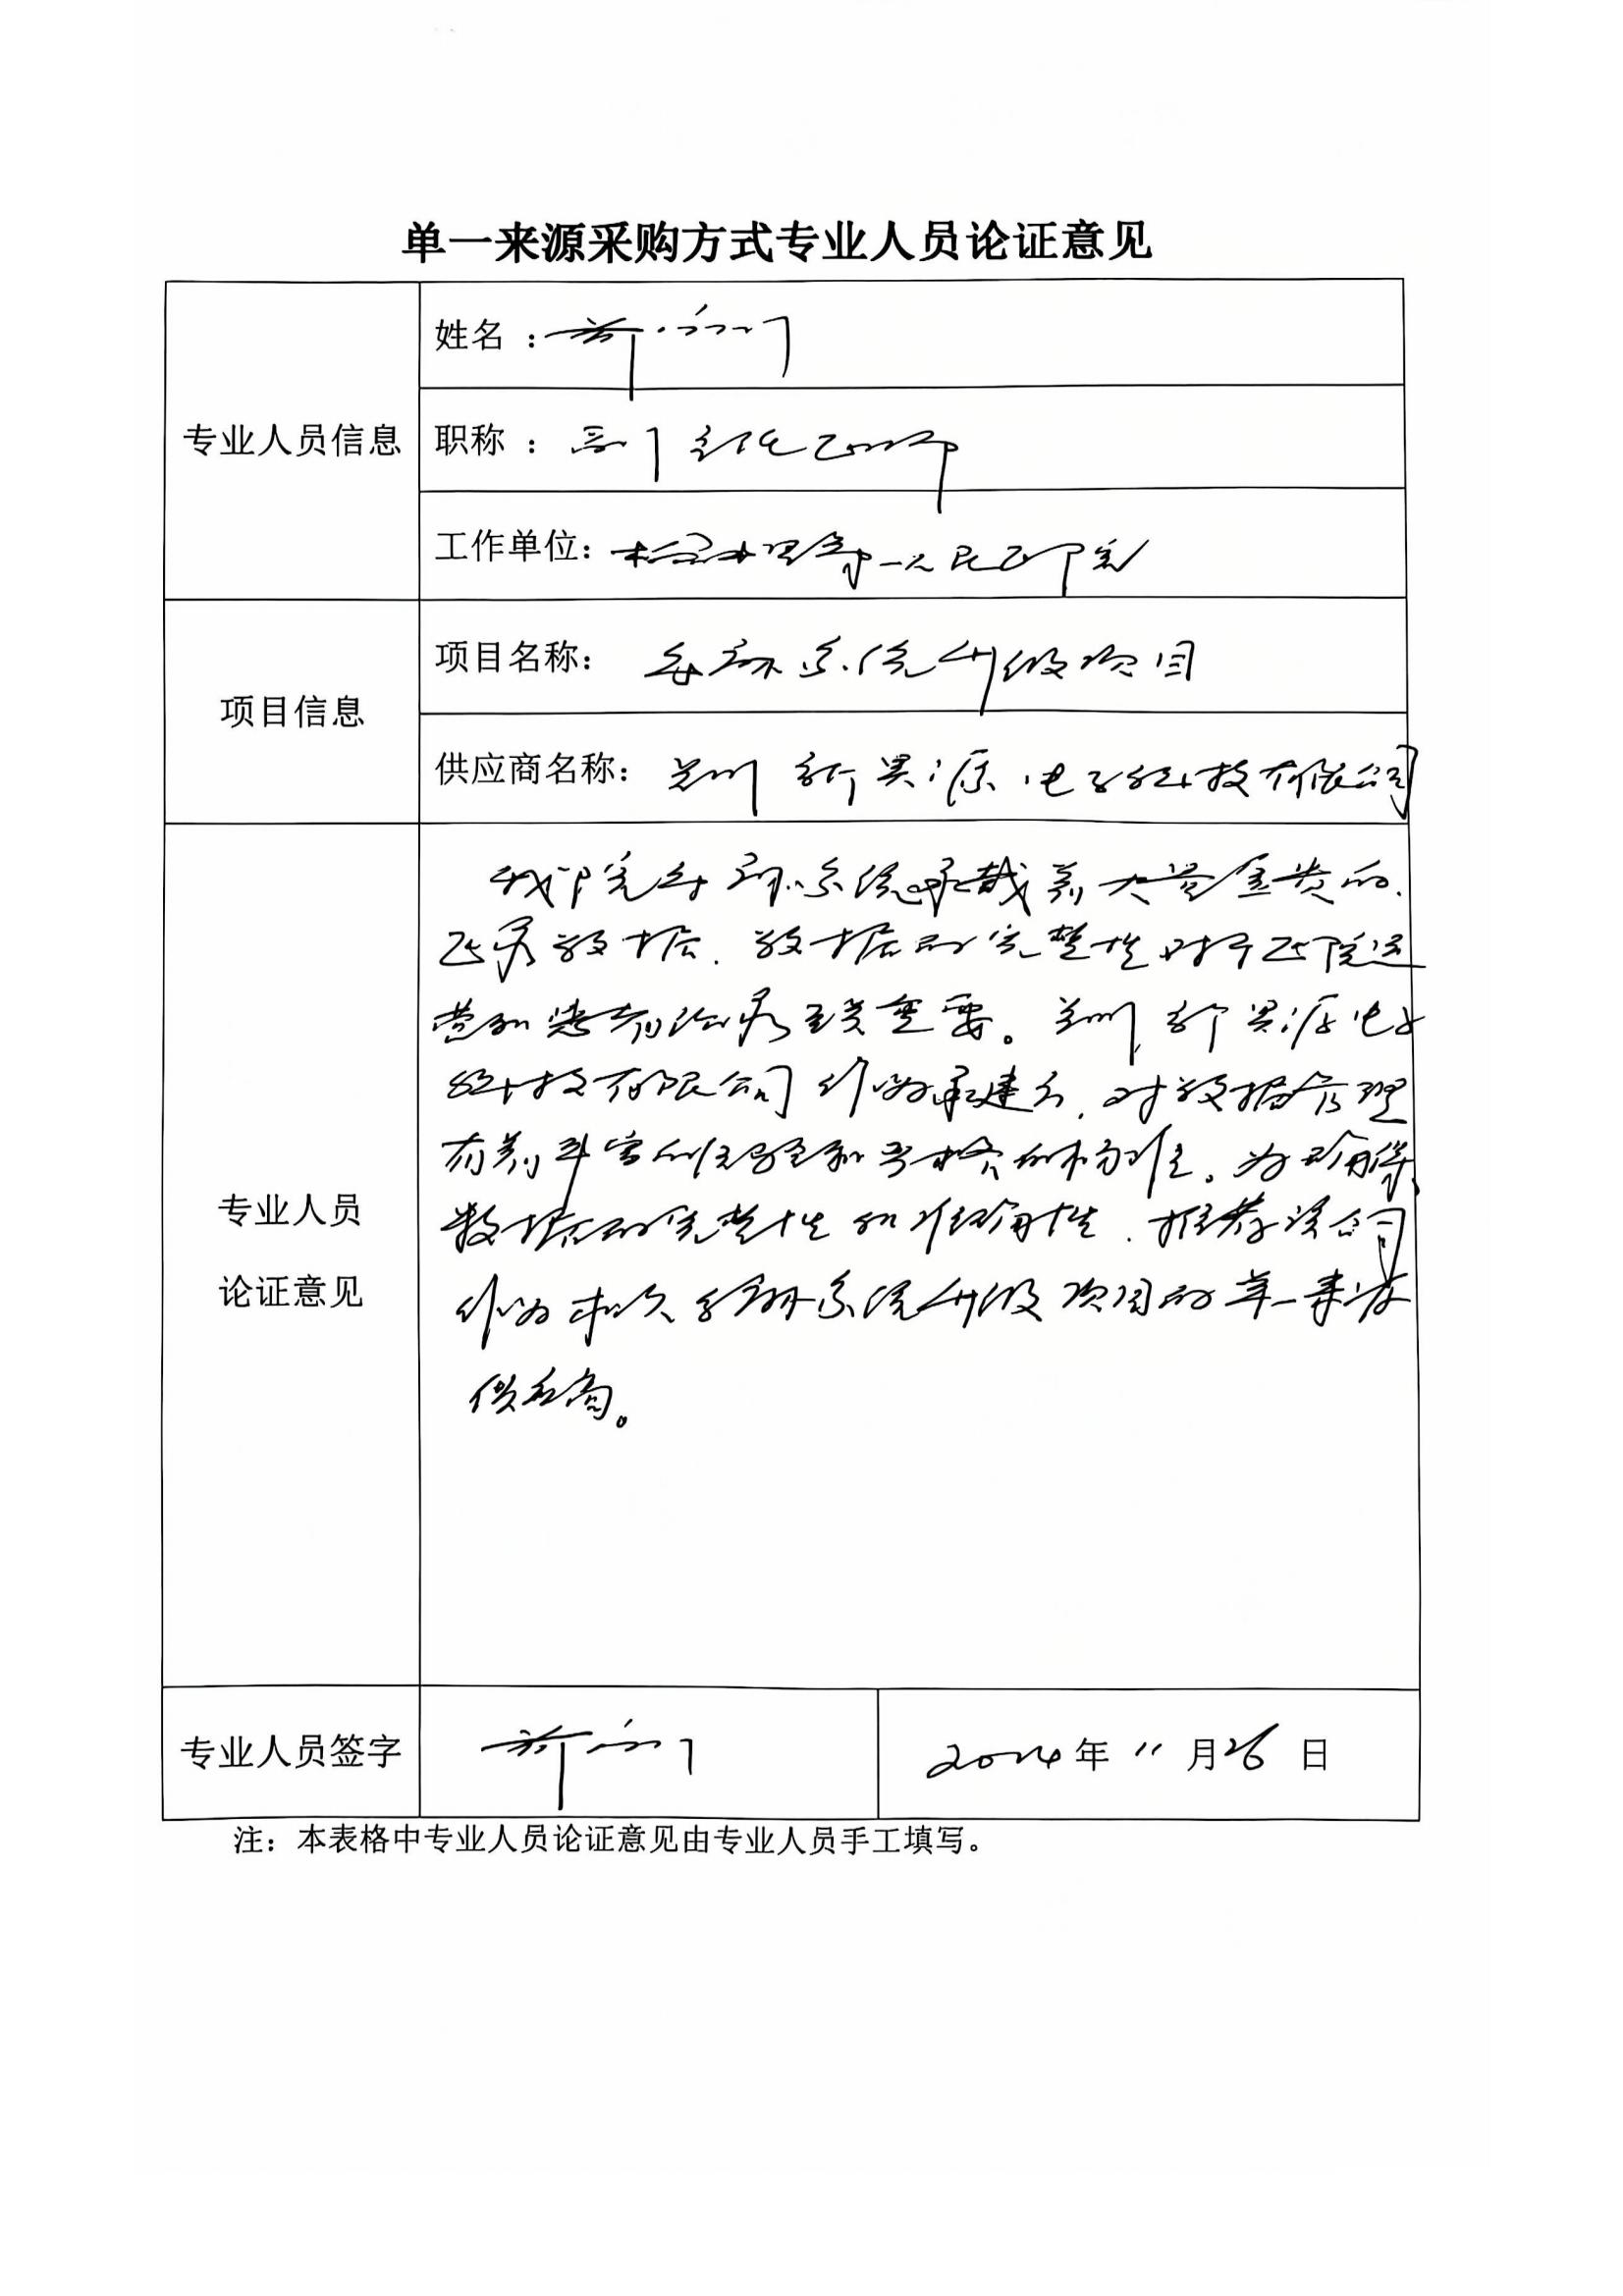 单一来源采购方式专业人员论证意见
专业人员信息
姓名：
职称：副主任医师
工作单位：第一人民医院
项目信息
项目名称：系统升级项目
供应商名称：郑州新益源电子科技有限公司
专业人员
论证意见
我院系统承载着大量宝贵的
医疗数据，数据的完整性对于医院运
营和患者治疗至关重要。郑州新益源电子
科技有限公司作为承建方，对数据管理
有着丰富的经验和严格的标准。为确保
数据的完整性和准确性，推荐该公司
作为本次系统升级项目的单一来源
供应商。
专业人员签字
2024年11月26日
注：本表格中专业人员论证意见由专业人员手工填写。